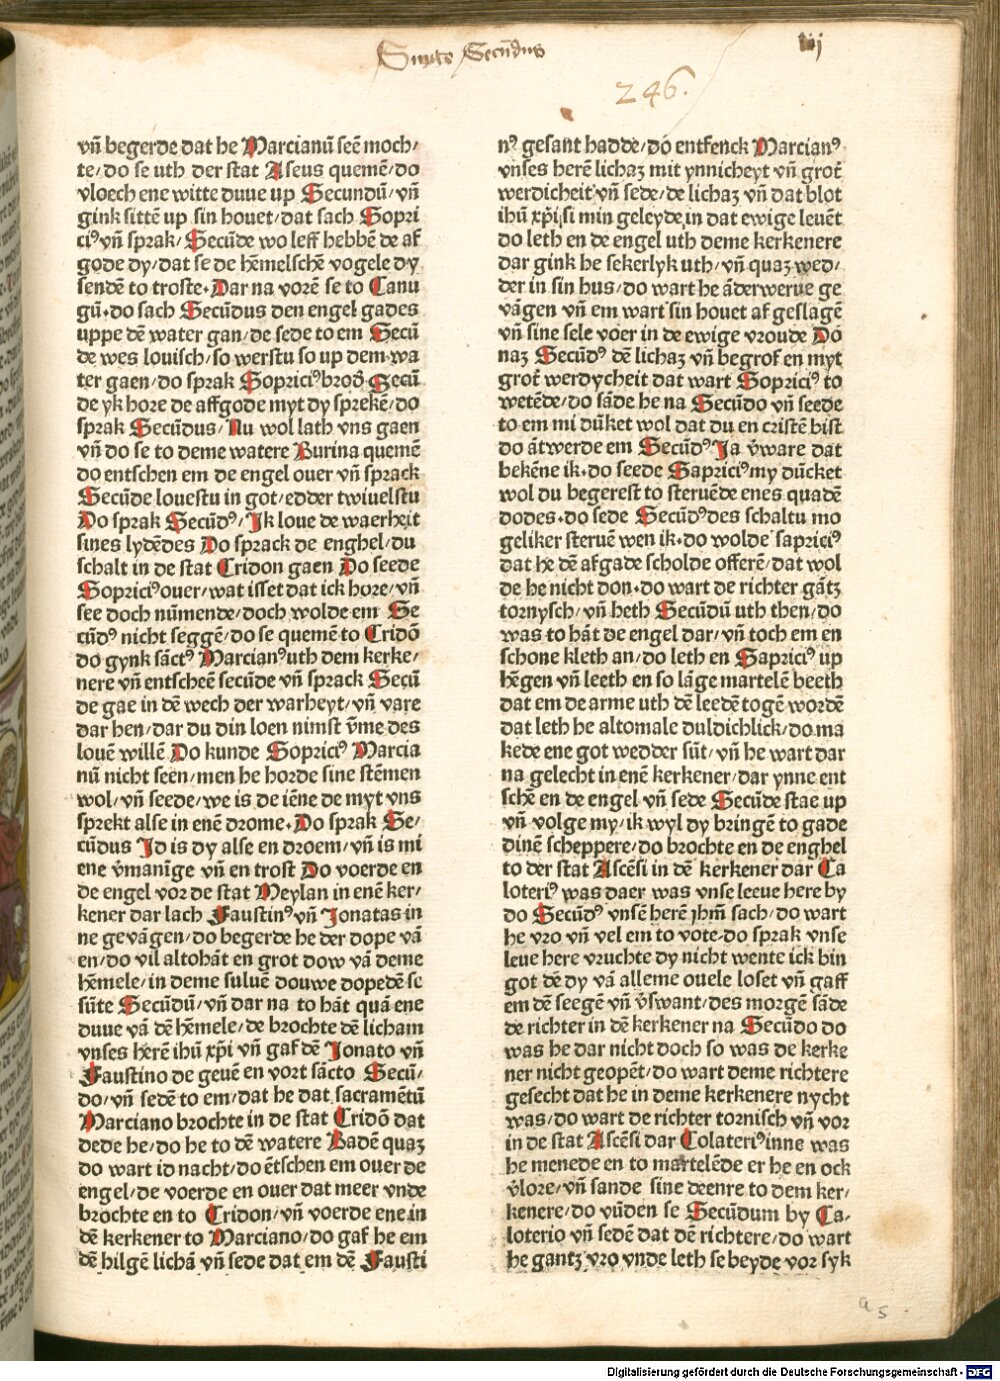 Sunte Secūdus
iij
246.
vn̄ begerde dat he Marcianū seē moch/
te/do se uth der stat Aseus quemē/do
vloech ene witte duue up Secundū/vn̄
gink sittē up sin houet/dat sach Sopri
ciꝰ vn̄ sprak/Secūde wo leff hebbē de af
gode dy/dat se de hēmelschē vogele dy
sendē to troste.Dar na vorē se to Canu
gū.do sach Secūdus den engel gades
uppe dē water gan/de sede to em Secū
de wes louisch/so werstu so up dem wa
ter gaen/do sprak Sopriciꝰ brod̄ Secū
de yk hore de affgode myt dy sprekē/do
sprak Secūdus/Nu wol lath vns gaen
vn̄ do se to deme watere Burina quemē
do entschen em de engel ouer vn̄ sprack
Secūde louestu in got/edder twiuelstu
Do sprak Secūdꝰ/Ik loue de waerheit
sines lydēdes Do sprack de enghel/du
schalt in de stat Cridon gaen Do seede
Sopriciꝰ ouer/wat isset dat ick hore/vn̄
see doch nūmende/doch wolde em Se
cūdꝰ nicht seggē/do se quemē to Cridō
do gynk sāctꝰ Marcianꝰ uth dem kerke/
nere vn̄ entscheē secūde vn̄ sprack Secū
de gae in dē wech der warheyt/vn̄ vare
dar hen/dar du din loen nimst v̄me des
louē willē Do kunde Sopriciꝰ Marcia
nū nicht seen/men he horde sine stēmen
wol/vn̄ seede/we is de iēne de myt vns
sprekt alse in enē drome.Do sprak Se/
cūdus Id is dy alse en droem/vn̄ is mi
ene v̄manige vn̄ en trost Do voerde en
de engel vor de stat Meylan in enē ker/
kener dar lach Faustinꝰ vn̄ Jonatas in
ne gevāgen/do begerde he der dope vā
en/do vil altohāt en grot dow vā deme
hēmele/in deme suluē douwe dopedē se
sūte Secūdū/vn̄ dar na to hāt quā ene
duue vā dē hēmele/de brochte dē licham
vnses herē ihū xp̄i vn̄ gaf dē Jonato vn̄
Faustino de geuē en vort sācto Secū/
do/vn̄ sedē to em/dat he dat sacramētū
Marciano brochte in de stat Cridō dat
dede he/do he to dē watere Badē quaʒ
do wart id nacht/do ētschen em ouer de
engel/de voerde en ouer dat meer vnde
brochte en to Cridon/vn̄ voerde ene in
dē kerkener to Marciano/do gaf he em
dē hilgē lichā vn̄ sede dat em dē Fausti
nꝰ gesant hadde/do entfenck Marcianꝰ
vnses herē lichaʒ mit ynnicheyt vn̄ grot̄
werdicheit vn̄ sede/de lichaʒ vn̄ dat blot
ihū xp̄i si min geleyde in dat ewige leuēt
do leth en de engel uth deme kerkenere
dar gink he sekerlyk uth/vn̄ quaʒ wed/
der in sin hus/do wart he āderwerue ge
vāgen vn̄ em wart sin houet af geslagē
vn̄ sine sele voer in de ewige vroude Do
naʒ Secūdꝰ dē lichaʒ vn̄ begrof en myt
grot̄ werdycheit dat wart Sopriciꝰ to
wetēde/do sāde he na Secūdo vn̄ seede
to em mi dūket wol dat du en cristē bist
do ātwerde em Secūdꝰ Ja v̄ware dat
bekēne ik.do seede Sapriciꝰ my dūcket
wol du begerest to steruēde enes quadē
dodes.do sede Secūdꝰ des schaltu mo
geliker steruē wen ik.do wolde sapriciꝰ
dat he dē afgade scholde offerē/dat wol
de he nicht don.do wart de richter gātʒ
tornysch/vn̄ heth Secūdū uth then/do
was to hāt de engel dar/vn̄ toch em en
schone kleth an/do leth en Sapriciꝰ up
hēgen vn̄ leeth en so lāge martelē beeth
dat em de arme uth dē leedē togē wordē
dat leth he altomale duldichlick/do ma
kede ene got wedder sūt/vn̄ he wart dar
na gelecht in enē kerkener/dar ynne ent
schē en de engel vn̄ sede Secūde stae up
vn̄ volge my/ik wyl dy bringē to gade
dinē scheppere/do brochte en de enghel
to der stat Ascēsi in dē kerkener dar Ca
loteriꝰ was daer was vnse leeue here by
do Secūdꝰ vnsē herē ihm̄ sach/do wart
he vro vn̄ vel em to vote.do sprak vnse
leue here vruchte dy nicht wente ick bin
got dē dy vā alleme ouele loset vn̄ gaff
em dē seegē vn̄ v̄swant/des morgē sāde
de richter in dē kerkener na Secūdo do
was he dar nicht doch so was de kerke
ner nicht geopēt/do wart deme richtere
gesecht dat he in deme kerkenere nycht
was/do wart de richter tornisch vn̄ vor
in de stat Ascēsi dar Colateriꝰ inne was
he menede en to martelēde er he en ock
v̄lore/vn̄ sande sine deenre to dem ker/
kenere/do vūden se Secūdum by Ca-
loterio vn̄ sedē dat dē richtere/do wart
he gantʒ vro vnde leth se beyde vor syk
a 5
Digitalisierung gefördert durch die Deutsche Forschungsgemeinschaft - DFG